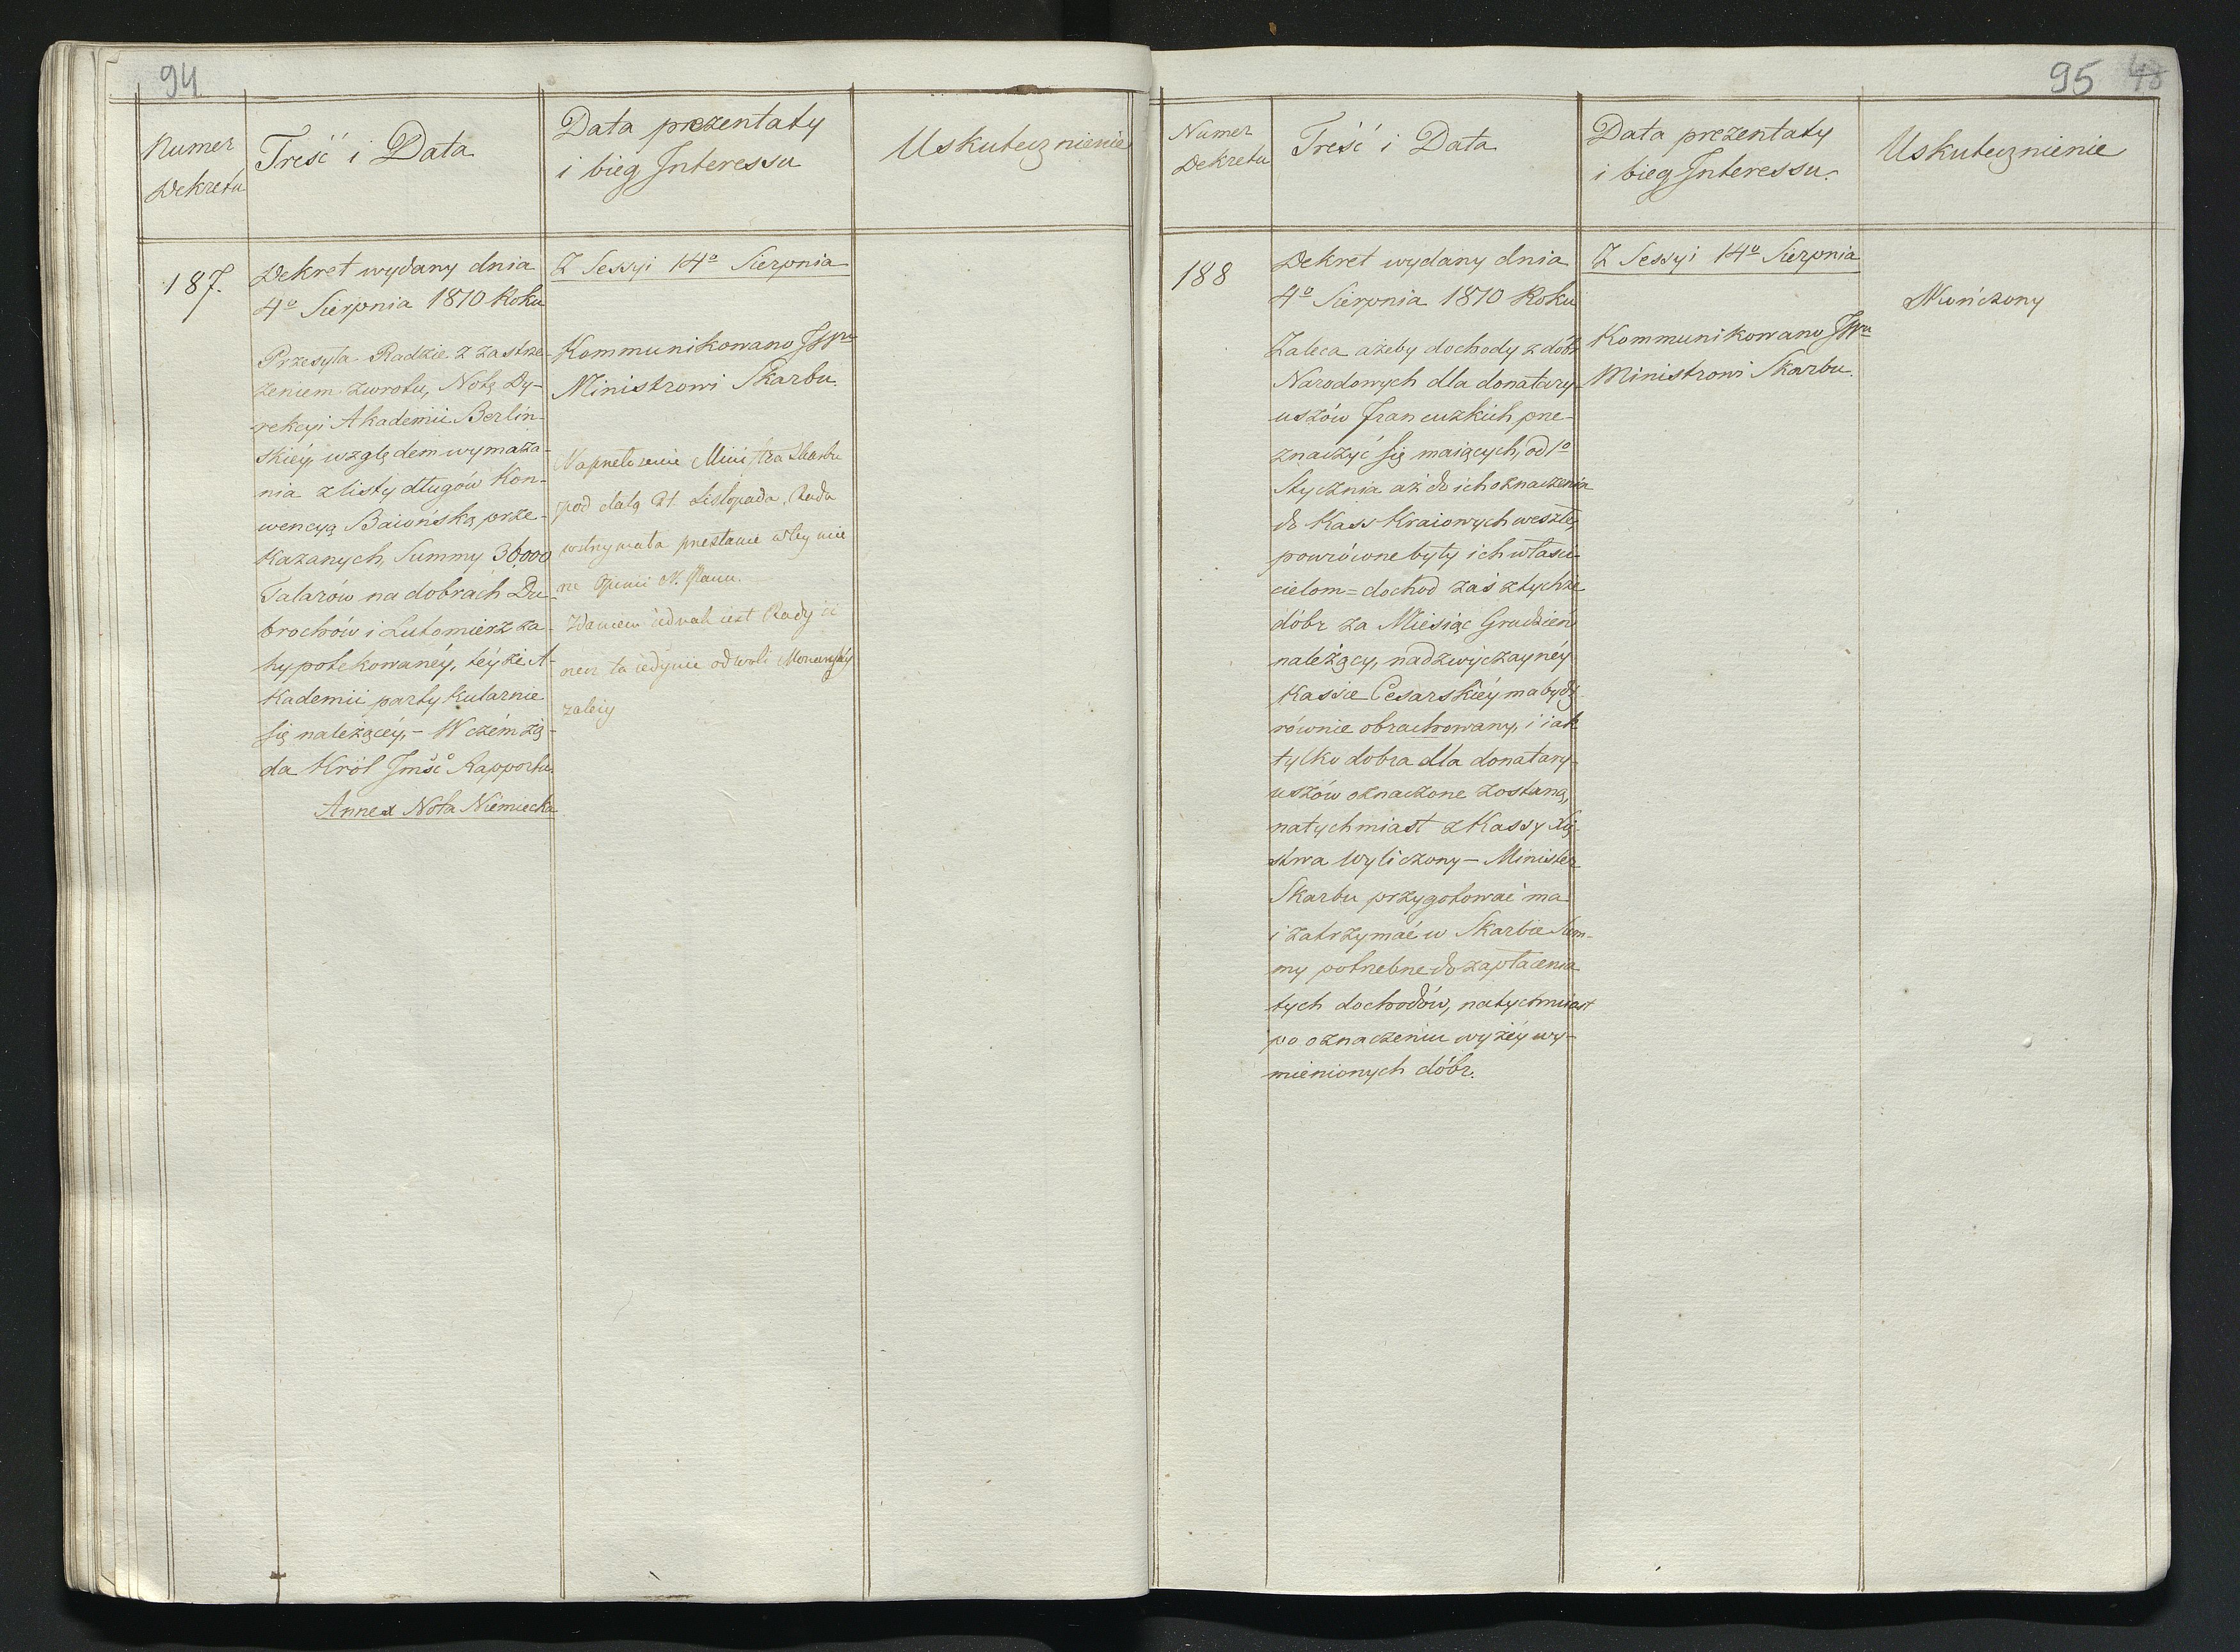 94
Numer
Dekretu
Treść i Data
Data prezentaty
i bieg Interessu
Uskutecznienie
187.
Dekret wydany dnia
4º Sierpnia 1810 Roku
Przesyła Radzie z zastrze-
żeniem zwrotu, Notę Dy-
rekcyi Akademii Berlin-
skiéy, względem wymaza-
nia z listy długów Kon-
wencyą Baiońską prze-
kazanych, Summy 36,000
Talarów na dobrach Du-
brochów i Lutomierz za-
hypotekowanéy, téyże A-
kademii partykularnie
się należącéy, – W czém żą-
da Król Jmść Rapportu.
Annex Nota Niémiecka
Z Sessyi 14º Sierpnia
Kommunikowano JWmu
Ministrowi Skarbu.
Na przełożenie Ministra Skarbu
pod datą 21. Listopada, Rada
wstrzymała przesłanie w tey mie
rze Opinii N. Panu.
Zdaniem iednak iest Rady iż
rzecz ta iedynie od woli Monarszéy
zależy
95 48
Numer
Dekretu
Treść i Data
Data prezentaty
i bieg Interessu.
Uskutecznienie
188
Dekret wydany dnia
4º Sierpnia 1810 Roku
Zaleca ażeby dochody z dóbr
Narodowych dla donatary-
uszów francuzkich prze-
znaczyć się maiących, od 1º
Stycznia aż do ich oznaczenia
do Kass Kraiowych weszłe,
powrócone były ich właści-
cielom = dochod zaś z tychże
dóbr za Miesiąc Grudzień
należący, nadzwyczaynéy
Kassie Cesarskiéy ma bydź
równie obrachowany, i iak
tylko dobra dla donatary-
uszów oznaczone zostaną,
natychmiast z Kassy Xię-
stwa wyliczony – Minister
Skarbu przygotować ma
i zatrzymać w Skarbie Sum-
my potrzebne do zapłacenia
tych dochodów, natychmiast
po oznaczeniu wyżéy wy-
mienionych dóbr.
Z Sessyi 14º Sierpnia
Kommunikowano JWmu
Ministrowi Skarbu.